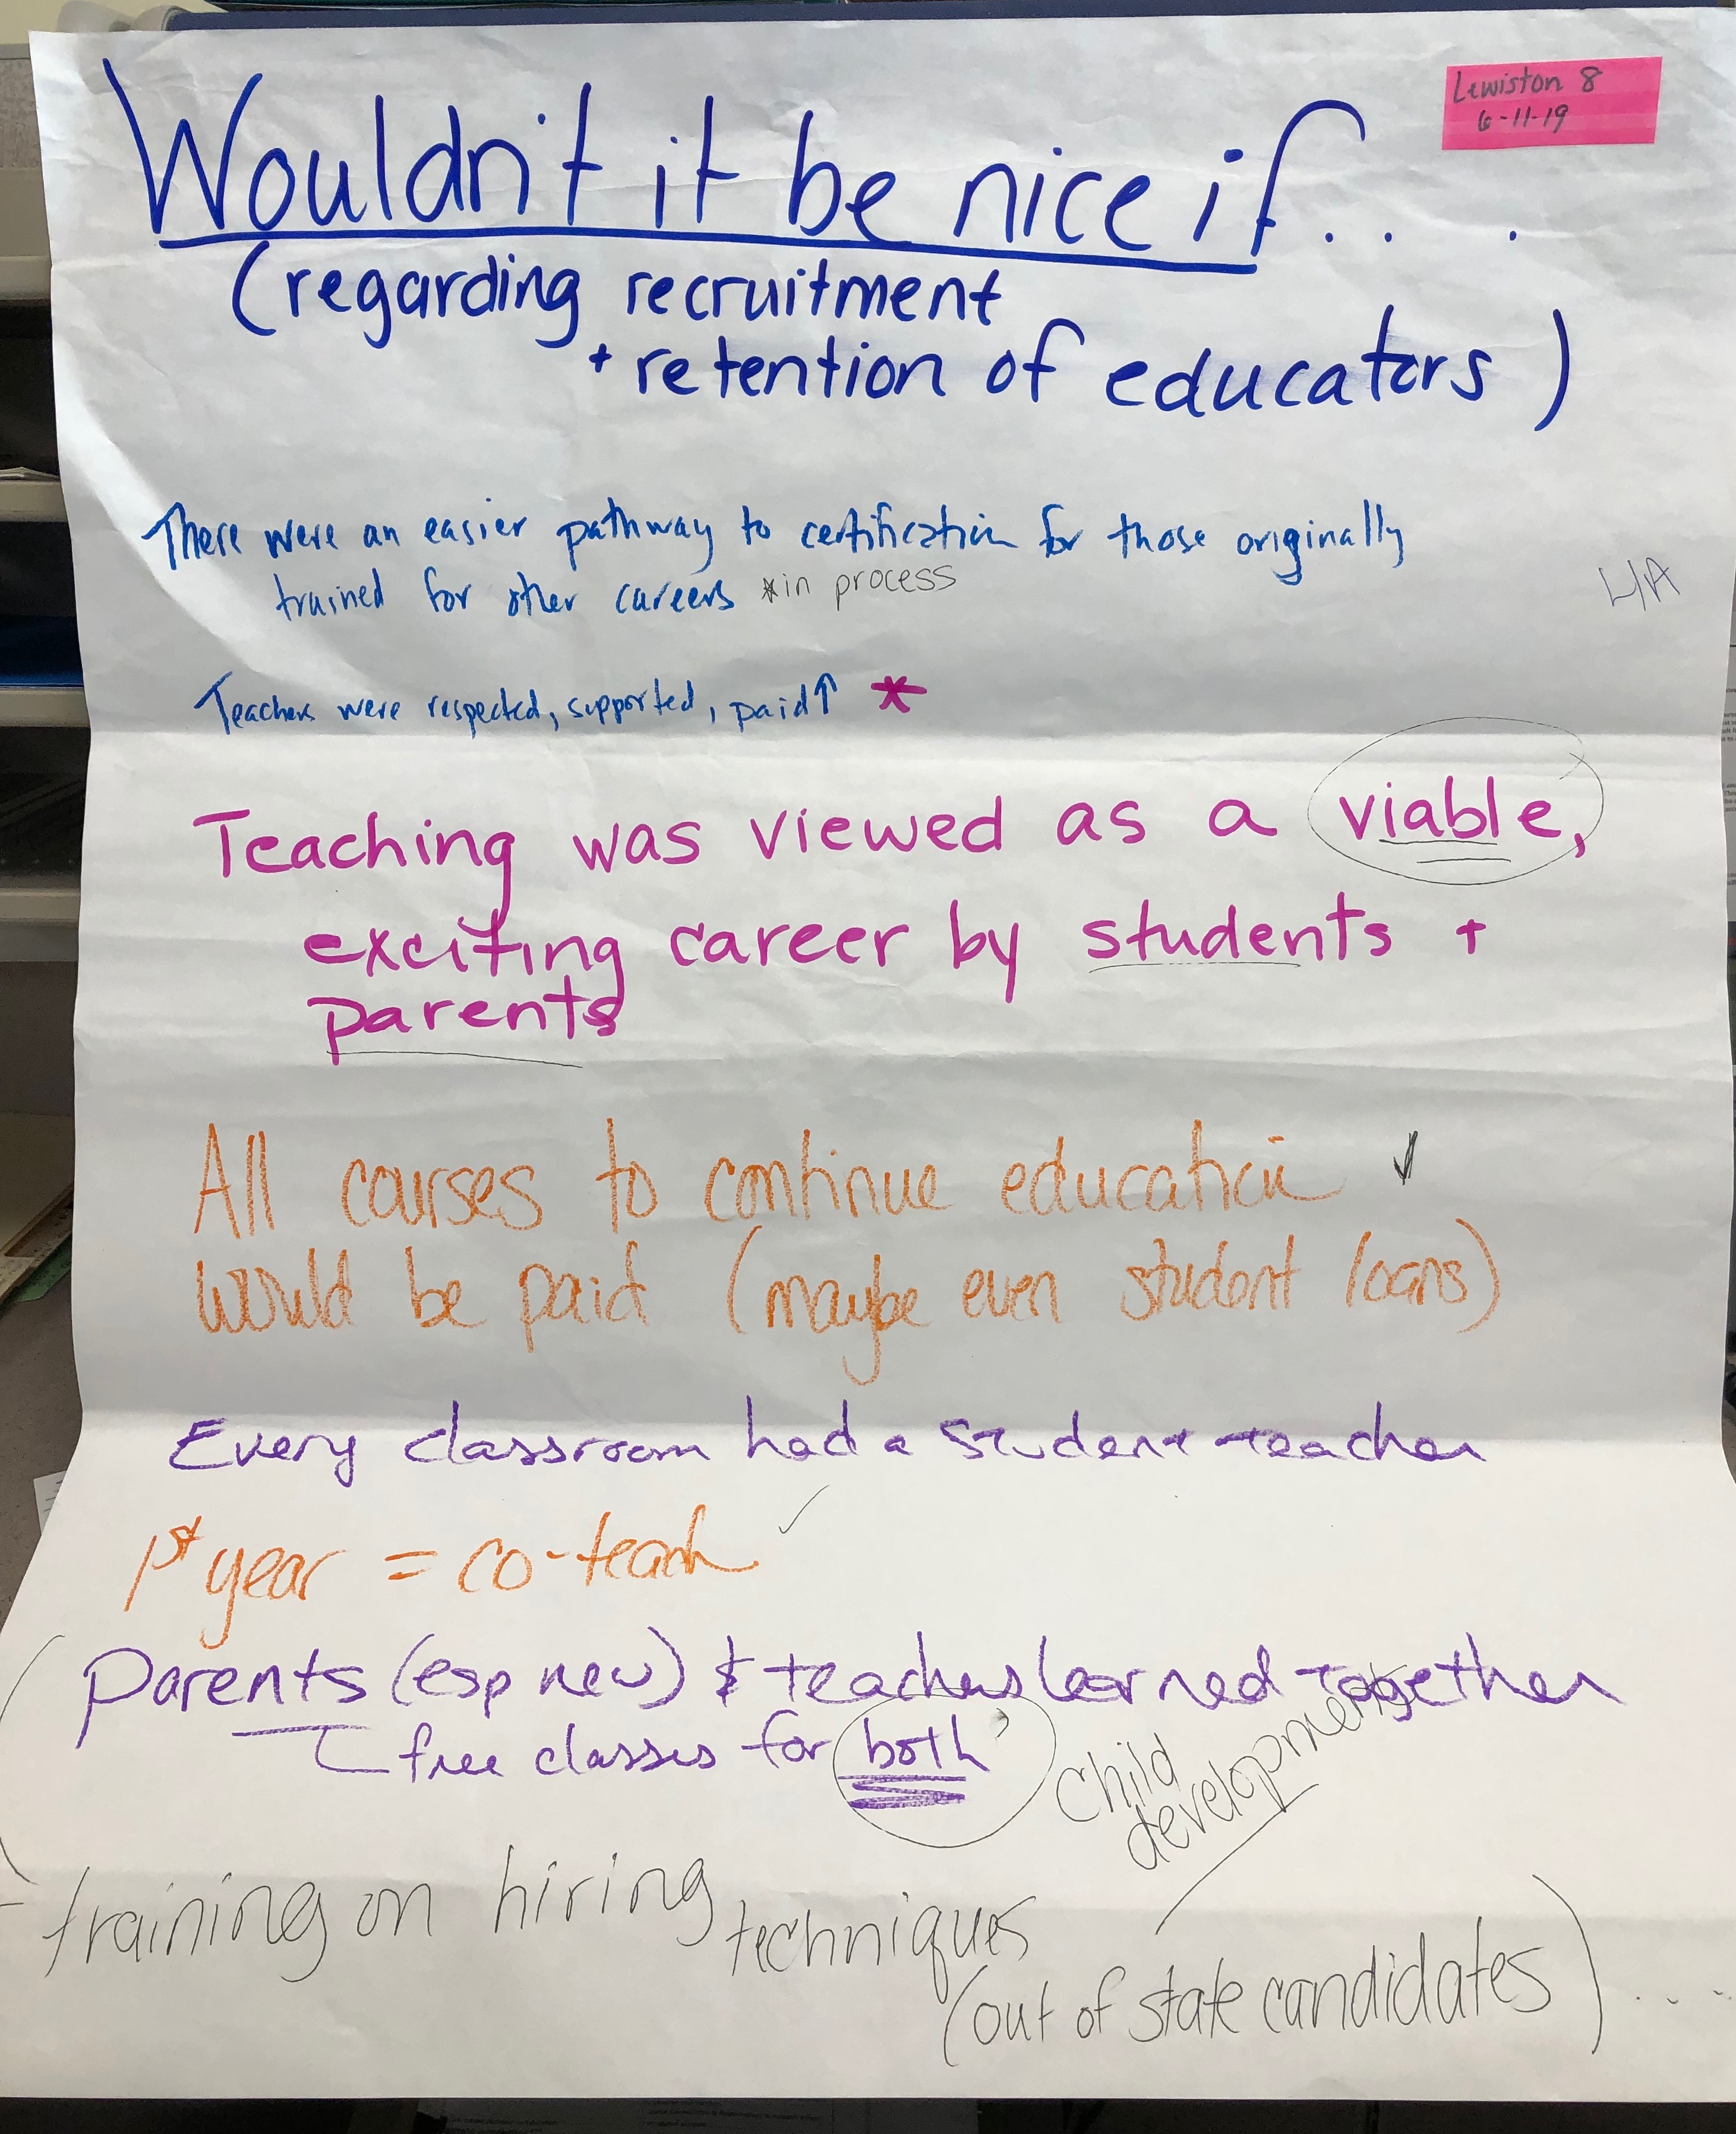 Lewiston 8
6-11-19
Wouldn't it be nice if...
(regarding recruitment
+ retention of educators)
There were an easier pathway to certification for those originally
trained for other careers *in process
L/A
Teachers were respected, supported, paid↑ *
Teaching was viewed as a viable,
exciting career by students +
parents
All courses to continue education ✓
would be paid (maybe even student loans)
Every classroom had a student teacher
1st year = co-teach ✓
Parents (esp new) & teachers learned together
free classes for both
child
development
- training on hiring
techniques
(out of state candidates) ....